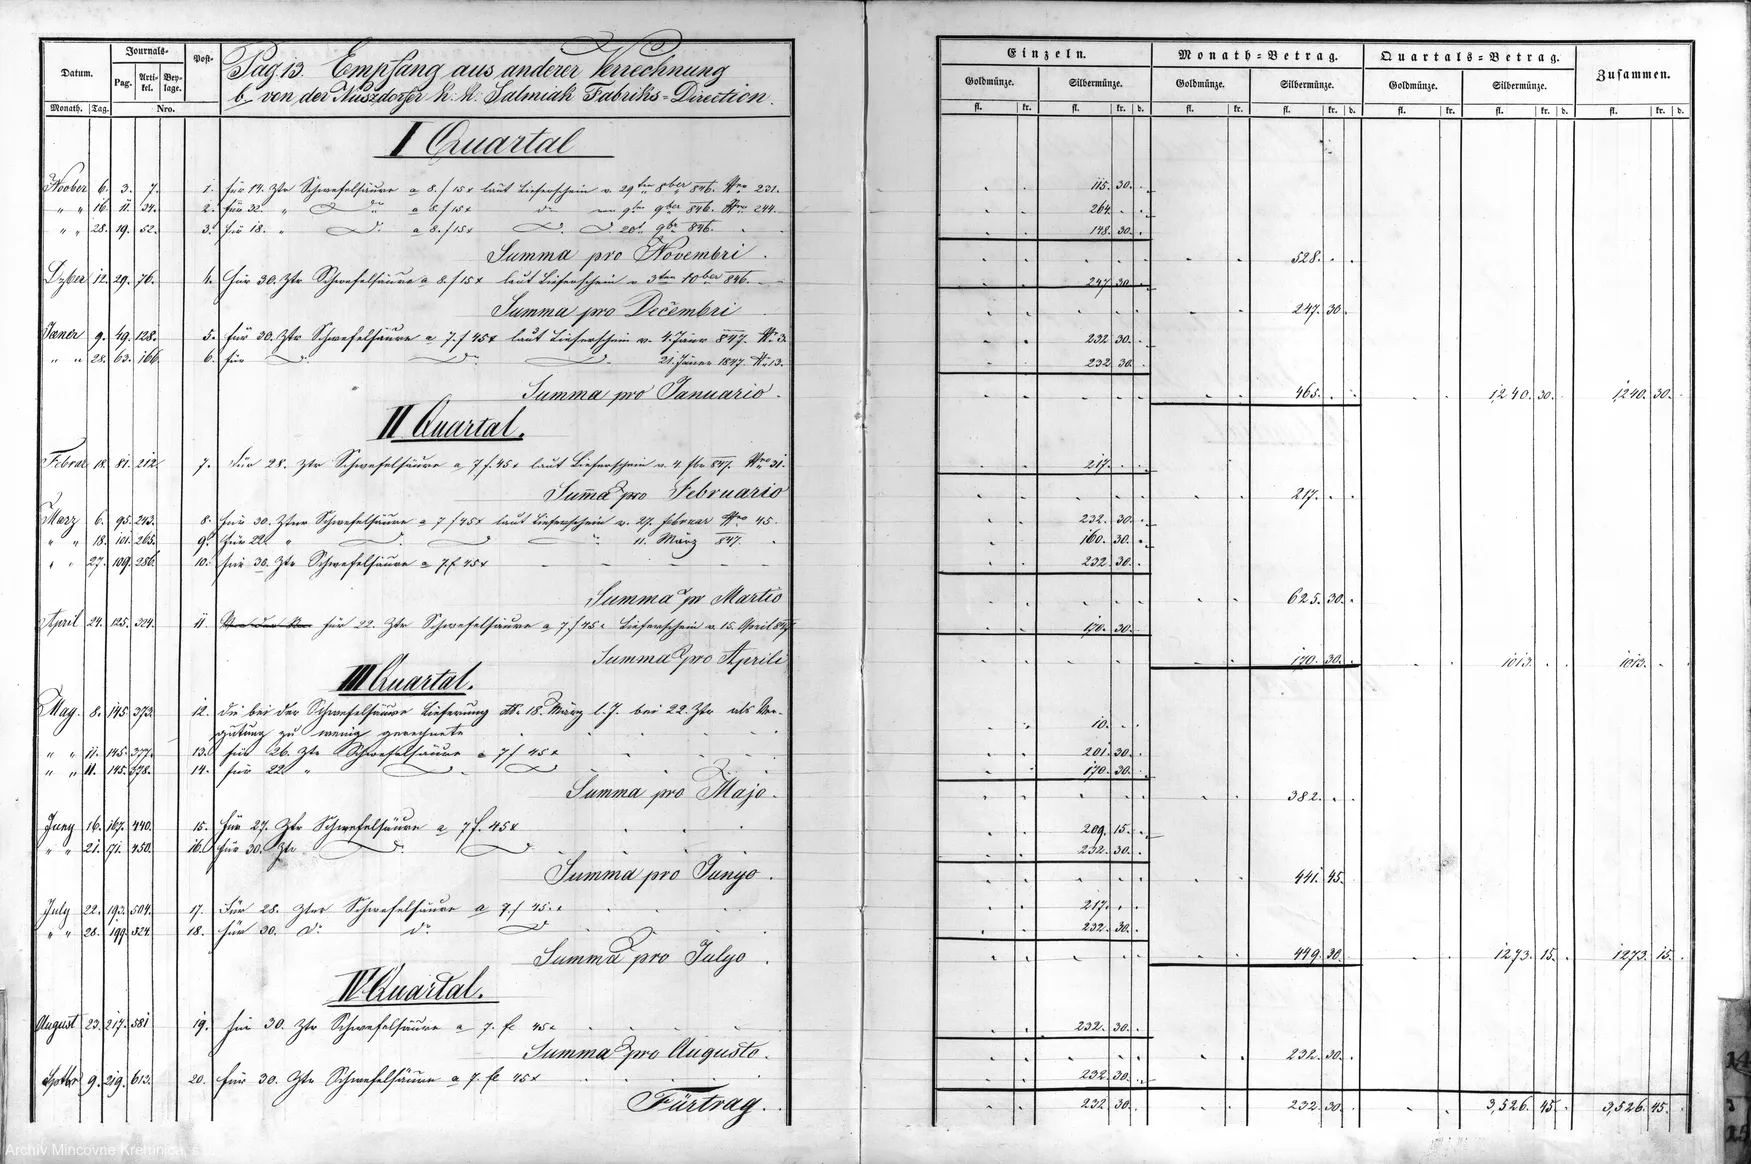 Datum. Journals- Post- Pag. 13. Empfang aus anderer Verrechnung
Pag. Arti-kel. Bey-lage. b, von der Nuszdorfer k: k: Salmiak Fabriks-Direction.
Monath. Tag. Nro.
Einzeln. Monath-Betrag. Quartals-Betrag. Zusammen.
Goldmünze. Silbermünze. Goldmünze. Silbermünze. Goldmünze. Silbermünze.
fl. kr. fl. kr. d. fl. kr. fl. kr. d. fl. kr. fl. kr. d. fl. kr. d.
I Quartal
Noober 6. 3. 7. 1. für 14. Ztr Schwefelsäure a 8. f 15 x laut Lieferschein v. 29ten 8ber 846. Nro 231. 115. 30.
" " 16. 11. 34. 2. für 32. " do a 8. f 15 x do 9ten 9ber 846. Nro 244. 264.
" " 28. 19. 52. 3. für 18. " do a 8. f 15 x 20t 9br 846. 148. 30.
Summa pro Novembri 528.
Dzber 12. 29. 76. 4. für 30. Ztr Schwefelsäure a 8. f 15 x laut Lieferschein v 3ten 10ber 846. 247 30.
Summa pro Decembri 247. 30.
Jäner 9. 49. 128. 5. für 30. Ztr Schwefelsäure a 7. f 45 x laut Lieferschein v. 4. Jänr 847. Nr 3. 232 30.
" " 28. 63. 166. 6. für do do 21. Jäner 1847. Nr 13. 232. 30.
Summa pro Januario 465. 1,240. 30. 1,240. 30.
II Quartal.
Februar 18. 81. 212. 7. Für 28. Ztr Schwefelsäure a 7 f. 45 x laut Lieferschein v. 4. fbr 847. Nro 31. 217.
Summa pro Februario 217.
März 6. 95. 243. 8. für 30. Ztner Schwefelsäure a 7 f 45 x laut Lieferschein v. 27. februar Nro 45. 232. 30.
" " 18. 101. 265. 9. für 22. " 11. März 847. 160. 30.
" " 27. 109. 286. 10. für 30. Ztr Schwefelsäure a 7. f 45 x 232. 30.
Summa pr Martio 625. 30.
April 24. 125. 324. 11. für 22. Ztr Schwefelsäure a 7. f 45 x Lieferschein v. 15. April 847 170. 30.
Summa pro Aprili 170. 30. 1013. 1013.
III Quartal.
May. 8. 145. 373. 12. die bei der Schwefelsäure Lieferung do 18. März l. J. bei 22. Ztr als Ver-
gütung zu wenig gerechnete 10.
" " 11. 145. 377. 13. für 26. Ztr Schwefelsäure a 7 f 45 x 201. 30.
" " 11. 145. 378. 14. für 22. " 170. 30.
Summa pro Majo. 382.
Juny 16. 167. 440. 15. für 27. Ztr Schwefelsäure a 7 f. 45 x 209. 15.
" " 21. 171. 450. 16. für 30. Ztr 232. 30.
Summa pro Junyo. 441. 45.
July 22. 193. 504. 17. Für 28. Ztnr Schwefelsäure a 7. f 45. x 217.
" " 28. 199. 524. 18. für 30. do do 232. 30.
Summa pro Julyo 449. 30. 1273. 15. 1273. 15.
IV Quartal.
August 23. 217. 581 19. für 30. Ztr Schwefelsäure a 7. fl 45 x 232. 30.
Summa pro Augusto. 232. 30.
Septbr 9. 219. 613. 20. für 30. Ztr Schwefelsäure a 7. fl 45 x 232. 30.
Fürtrag. 232 30. 232. 30. 3,526. 45. 3,526. 45.
Archív Mincovne Kremnica, š.p.